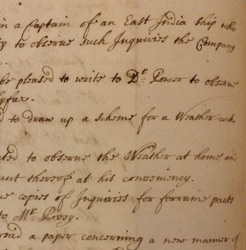 in a Captain of an East India ship who
to observe such Inquiries the Company
be pleased to write to Dr. Power to observe
lyfax.
d to draw up a Scheme for a Weather
ted to observe the Weather at home and
unt thereof at his conveniency.
e copies of Inquiries for forraine parts
to Mr. Povey.
read a paper concerning a new manner of